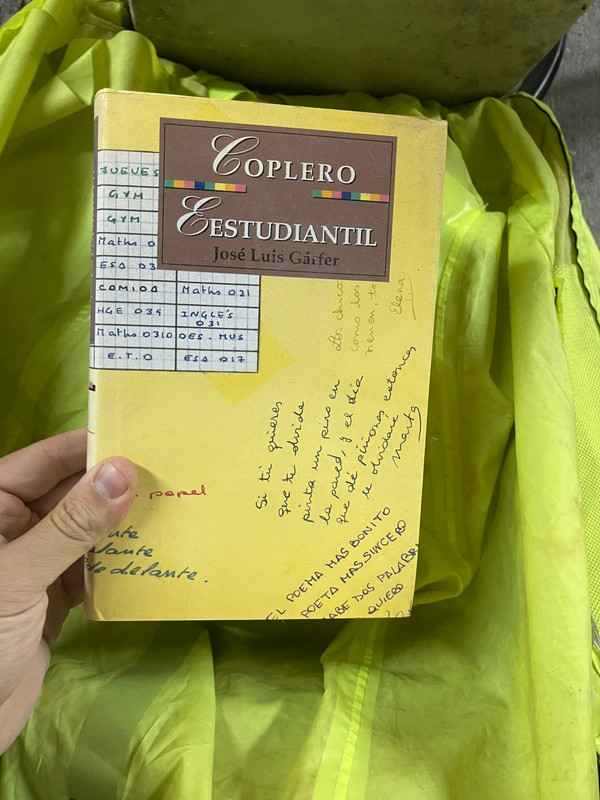 COPLERO
ESTUDIANTIL
José Luis Gárfer
JUEVES
GYM
GYM
Maths 0
ESA 03
COMIDA Maths 031
HGE 039 INGLÉS 031
Maths 0310 DES. MUS
E.T.O ESA 017
Los chico
como los
nenen, to
Elena
Si tú quieres
que te olvide
pinta un pino en
la pared, y el día
que dé piñones entonces
te olvidaré
Marta
papel
delante.
EL POEMA MAS BONITO
POETA MAS SINCERO
DOS PALABR
QUIERO